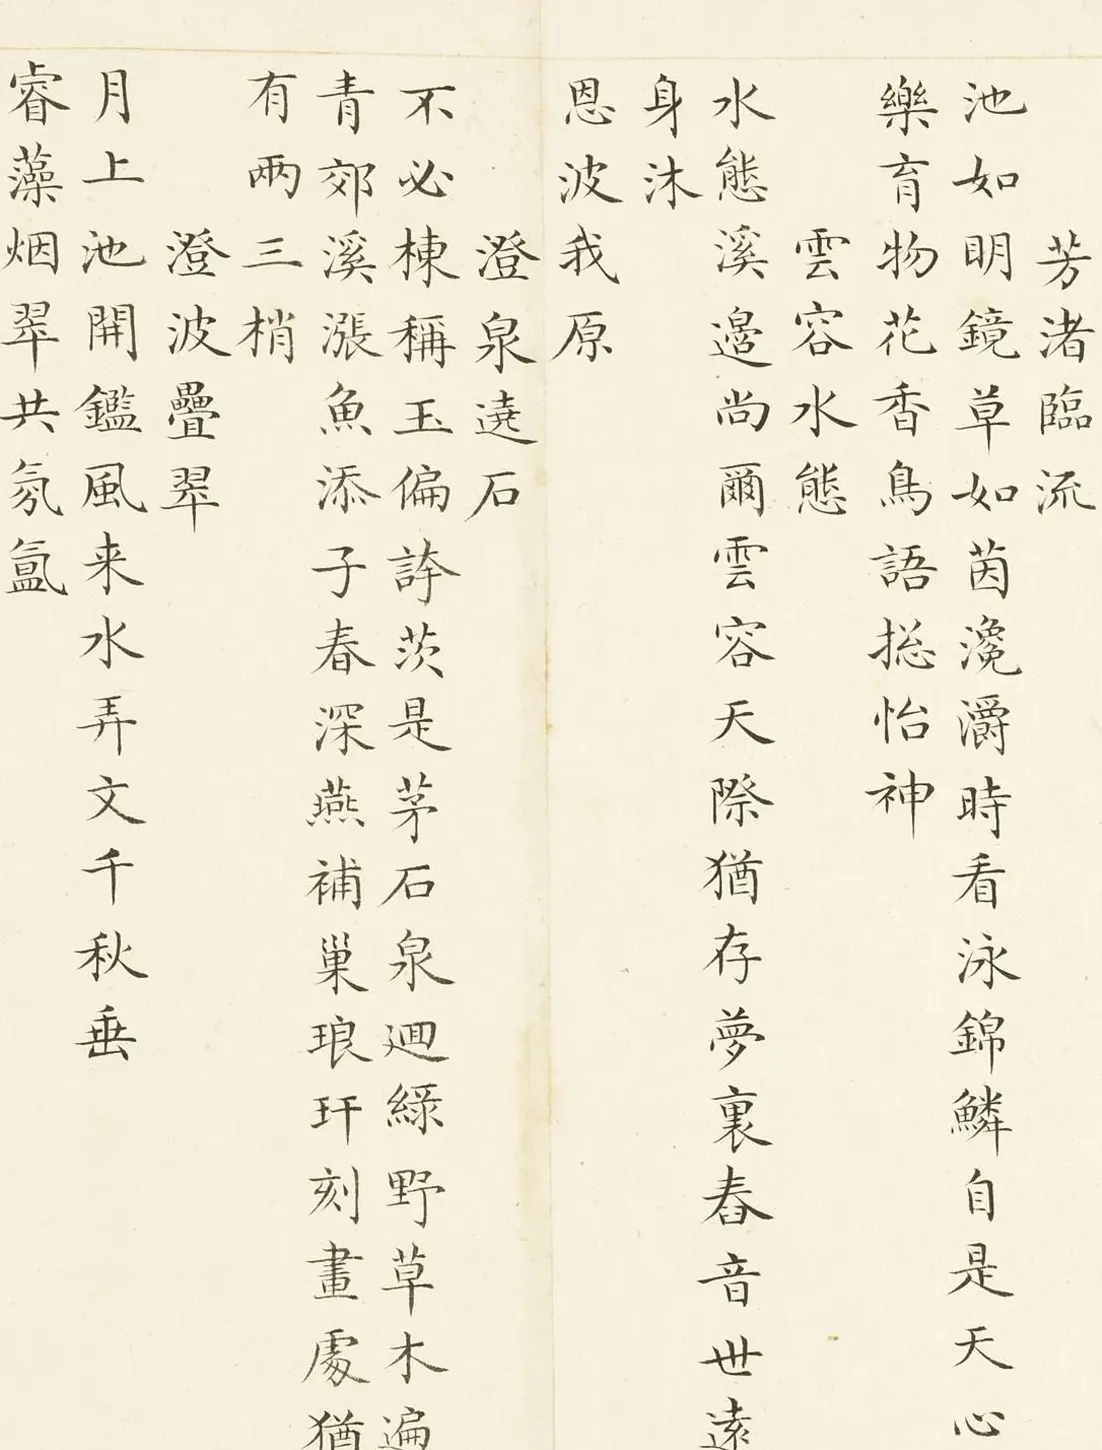 芳渚臨流
池如明鏡草如茵瀺灂時看泳錦鱗自是天心
樂育物花香鳥語揔怡神
雲容水態
水態溪邊尚爾雲容天際猶存夢裏舂音世遠
身沐
恩波我原
澄泉遶石
不必棟稱玉偏誇茨是茅石泉迴綠野草木遍
青郊溪漲魚添子春深燕補巢琅玕刻畫處猶
有兩三梢
澄波疊翠
月上池開鑑風来水弄文千秋垂
睿藻烟翠共氛氳